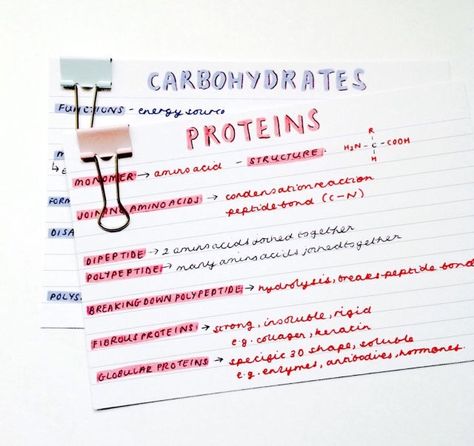 CARBOHYDRATES
FUNCTIONS - energy source
M
FORM
DISA
POLYS
PROTEINS
MONOMER → amino acid - STRUCTURE:
R
H₂N - C - COOH
H
JOINING AMINO ACIDS → condensation reaction
peptide bond (C-N)
DIPEPTIDE → 2 amino acids joined together
POLYPEPTIDE → many amino acids joined together
BREAKING DOWN POLYPEPTIDE → hydrolysis, breaks peptide bond
FIBROUS PROTEINS → strong, insoluble, rigid
e.g. collagen, keratin
GLOBULAR PROTEINS → specific 3D shape, soluble
e.g. enzymes, antibodies, hormones.